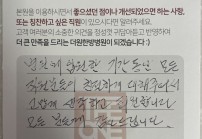 본원을 이용하시면서 좋으셨던 점이나 개선되었으면 하는 사항,
또는 칭찬하고 싶은 직원이 있으시다면 말씀해 주세요.
고객 여러분의 소중한 의견을 정성껏 귀담아듣고 반영하여
더 큰 만족을 드리는 더원한방병원이 되겠습니다 :)
기간동안 모든
직원분들이 친절하게 대해주셔서
감사합니다
모든 분들께 감사드립니다.